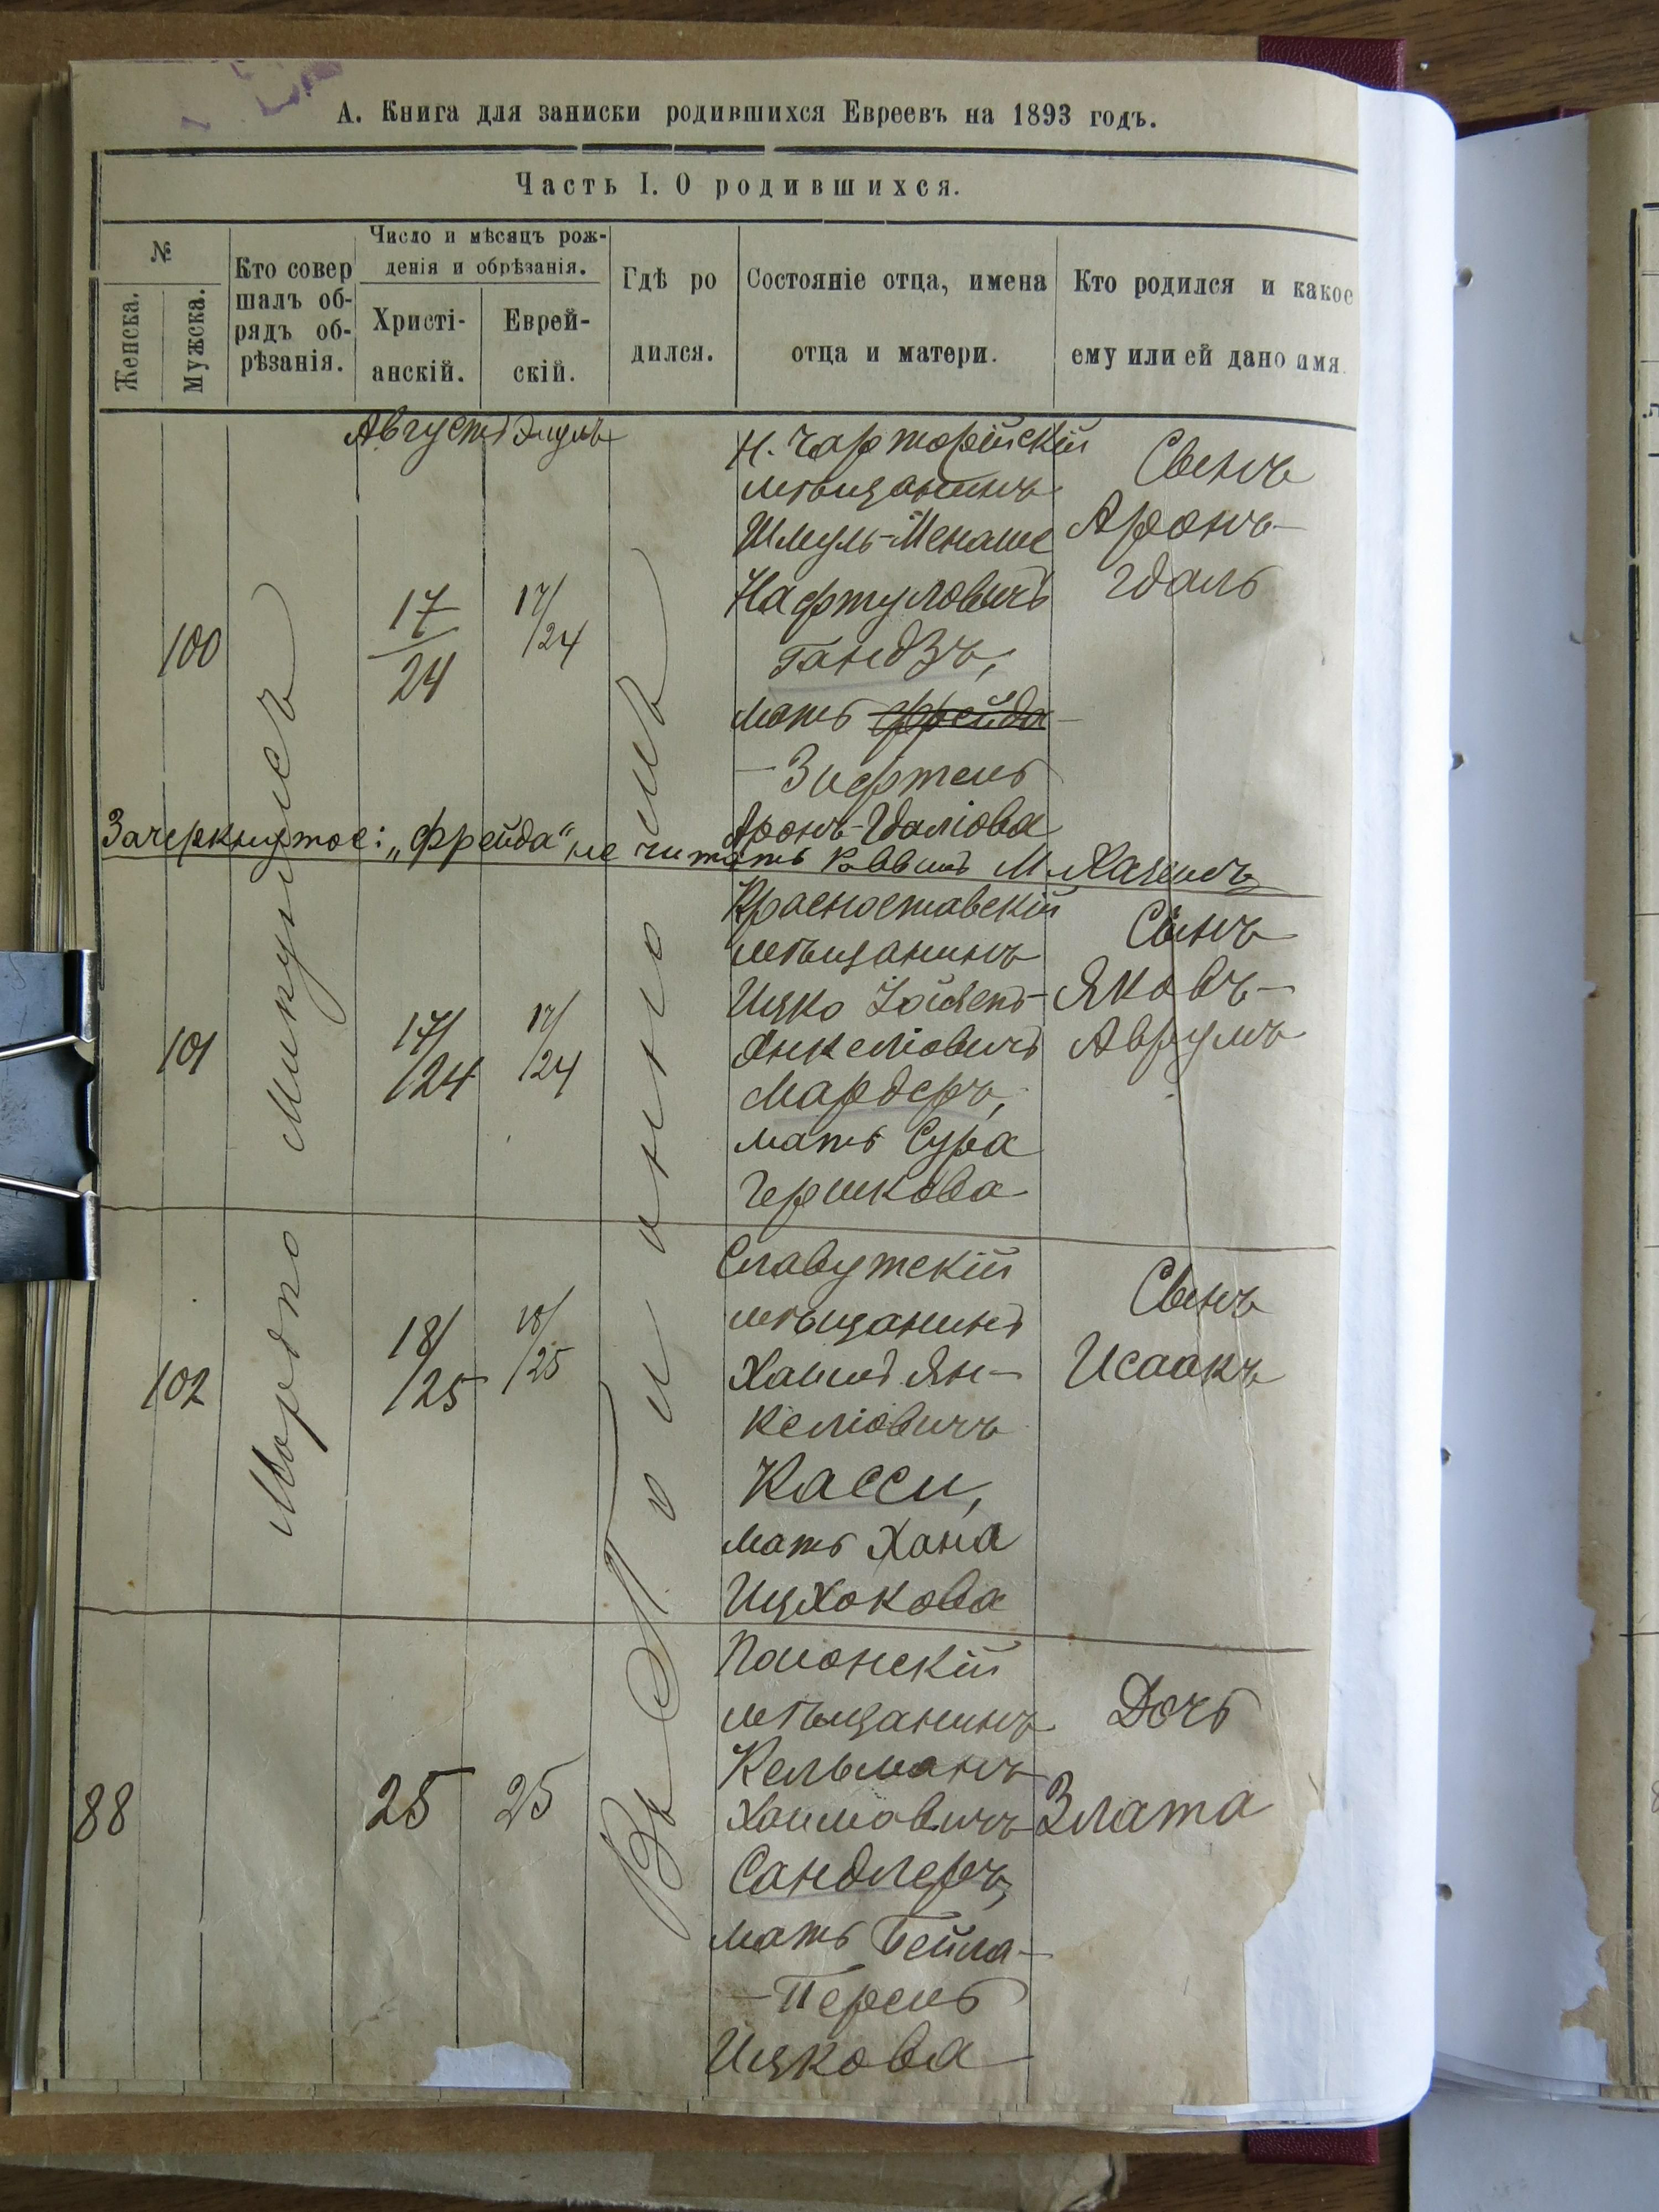 А. Книга для записки родившихся Евреевъ на 1893 годъ.
Часть I. О родившихся.
№
Женска.
Мужска.
Кто совер
шалъ об-
рядъ об-
рѣзанія.
Число и мѣсяцъ рож-
денія и обрѣзанія.
Христі-
анскій.
Еврей-
скій.
Гдѣ ро
дился.
Состояніе отца, имена
отца и матери.
Кто родился и какое
ему или ей дано имя.
Августъ Элулъ
Мордко Микулисъ
Въ Полонно
100
17/24
17/24
Н. Чарторійскій
мѣщанинъ
Шмуль-Менаше
Нафтуловичъ
Гандзъ,
мать Фрейда
-Зифтель
Аронъ-Гдаліова
Сынъ
Аронъ-
Гдаль
Зачеркнутое: „Фрейда“ не читать Раввинъ М. Хазинъ
101
17/24
17/24
Красноставскій
мѣщанинъ
Ицко
Янкеліовичъ
Мардеръ,
мать Сура
Гершкова
Сынъ
Яковъ-
Аврумъ
102
18/25
18/25
Славутскій
мѣщанинъ
Хаимъ Ян-
келіовичъ
Касси,
мать Хана
Ицхокова
Сынъ
Исаакъ
88
25
25
Полонскій
мѣщанинъ
Кельманъ
Хаимовичъ
Сандлеръ,
мать Бейла-
-Перель
Ицкова
Дочь
Злата